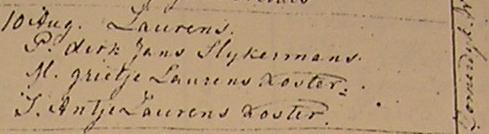 10 Aug. Laurens.
P. dirk Jans Slykermans.
M. grietje Laurens Koster.
T. Antje Laurens Koster.